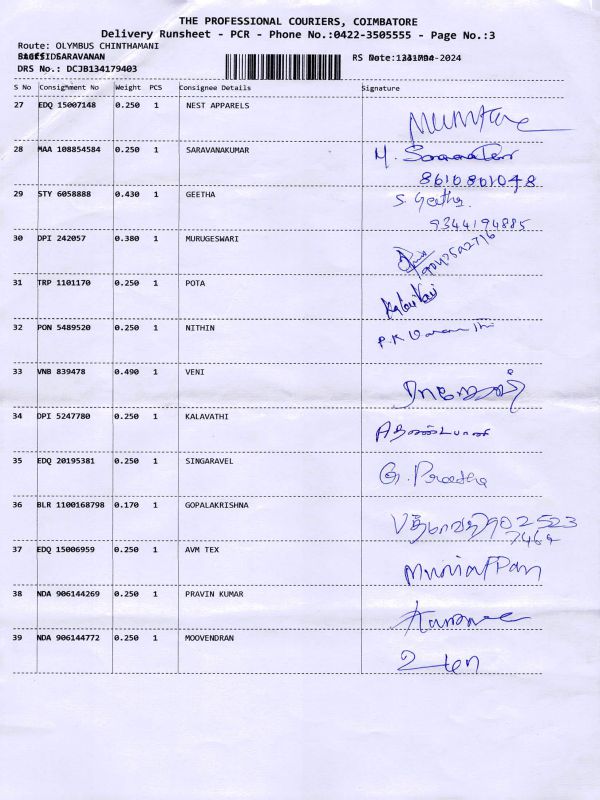 THE PROFESSIONAL COURIERS, COIMBATORE
Delivery Runsheet - PCR - Phone No.:0422-3505555 - Page No.:3
Route: OLYMBUS CHINTHAMANI
SARAVANAN
DRS No.: DCJB134179403
S No Consignment No Weight PCS Consignee Details Signature
27 EDQ 15007148 0.250 1 NEST APPARELS
28 MAA 108854584 0.250 1 SARAVANAKUMAR
8610801048
29 STY 6058888 0.430 1 GEETHA S. Geetha
9344194885
30 DPI 242057 0.380 1 MURUGESWARI
31 TRP 1101170 0.250 1 POTA
32 PON 5489520 0.250 1 NITHIN
33 VNB 839478 0.490 1 VENI
34 DPI 5247780 0.250 1 KALAVATHI
35 EDQ 20195381 0.250 1 SINGARAVEL
36 BLR 1100168798 0.170 1 GOPALAKRISHNA
37 EDQ 15006959 0.250 1 AVM TEX
38 NDA 906144269 0.250 1 PRAVIN KUMAR
39 NDA 906144772 0.250 1 MOOVENDRAN